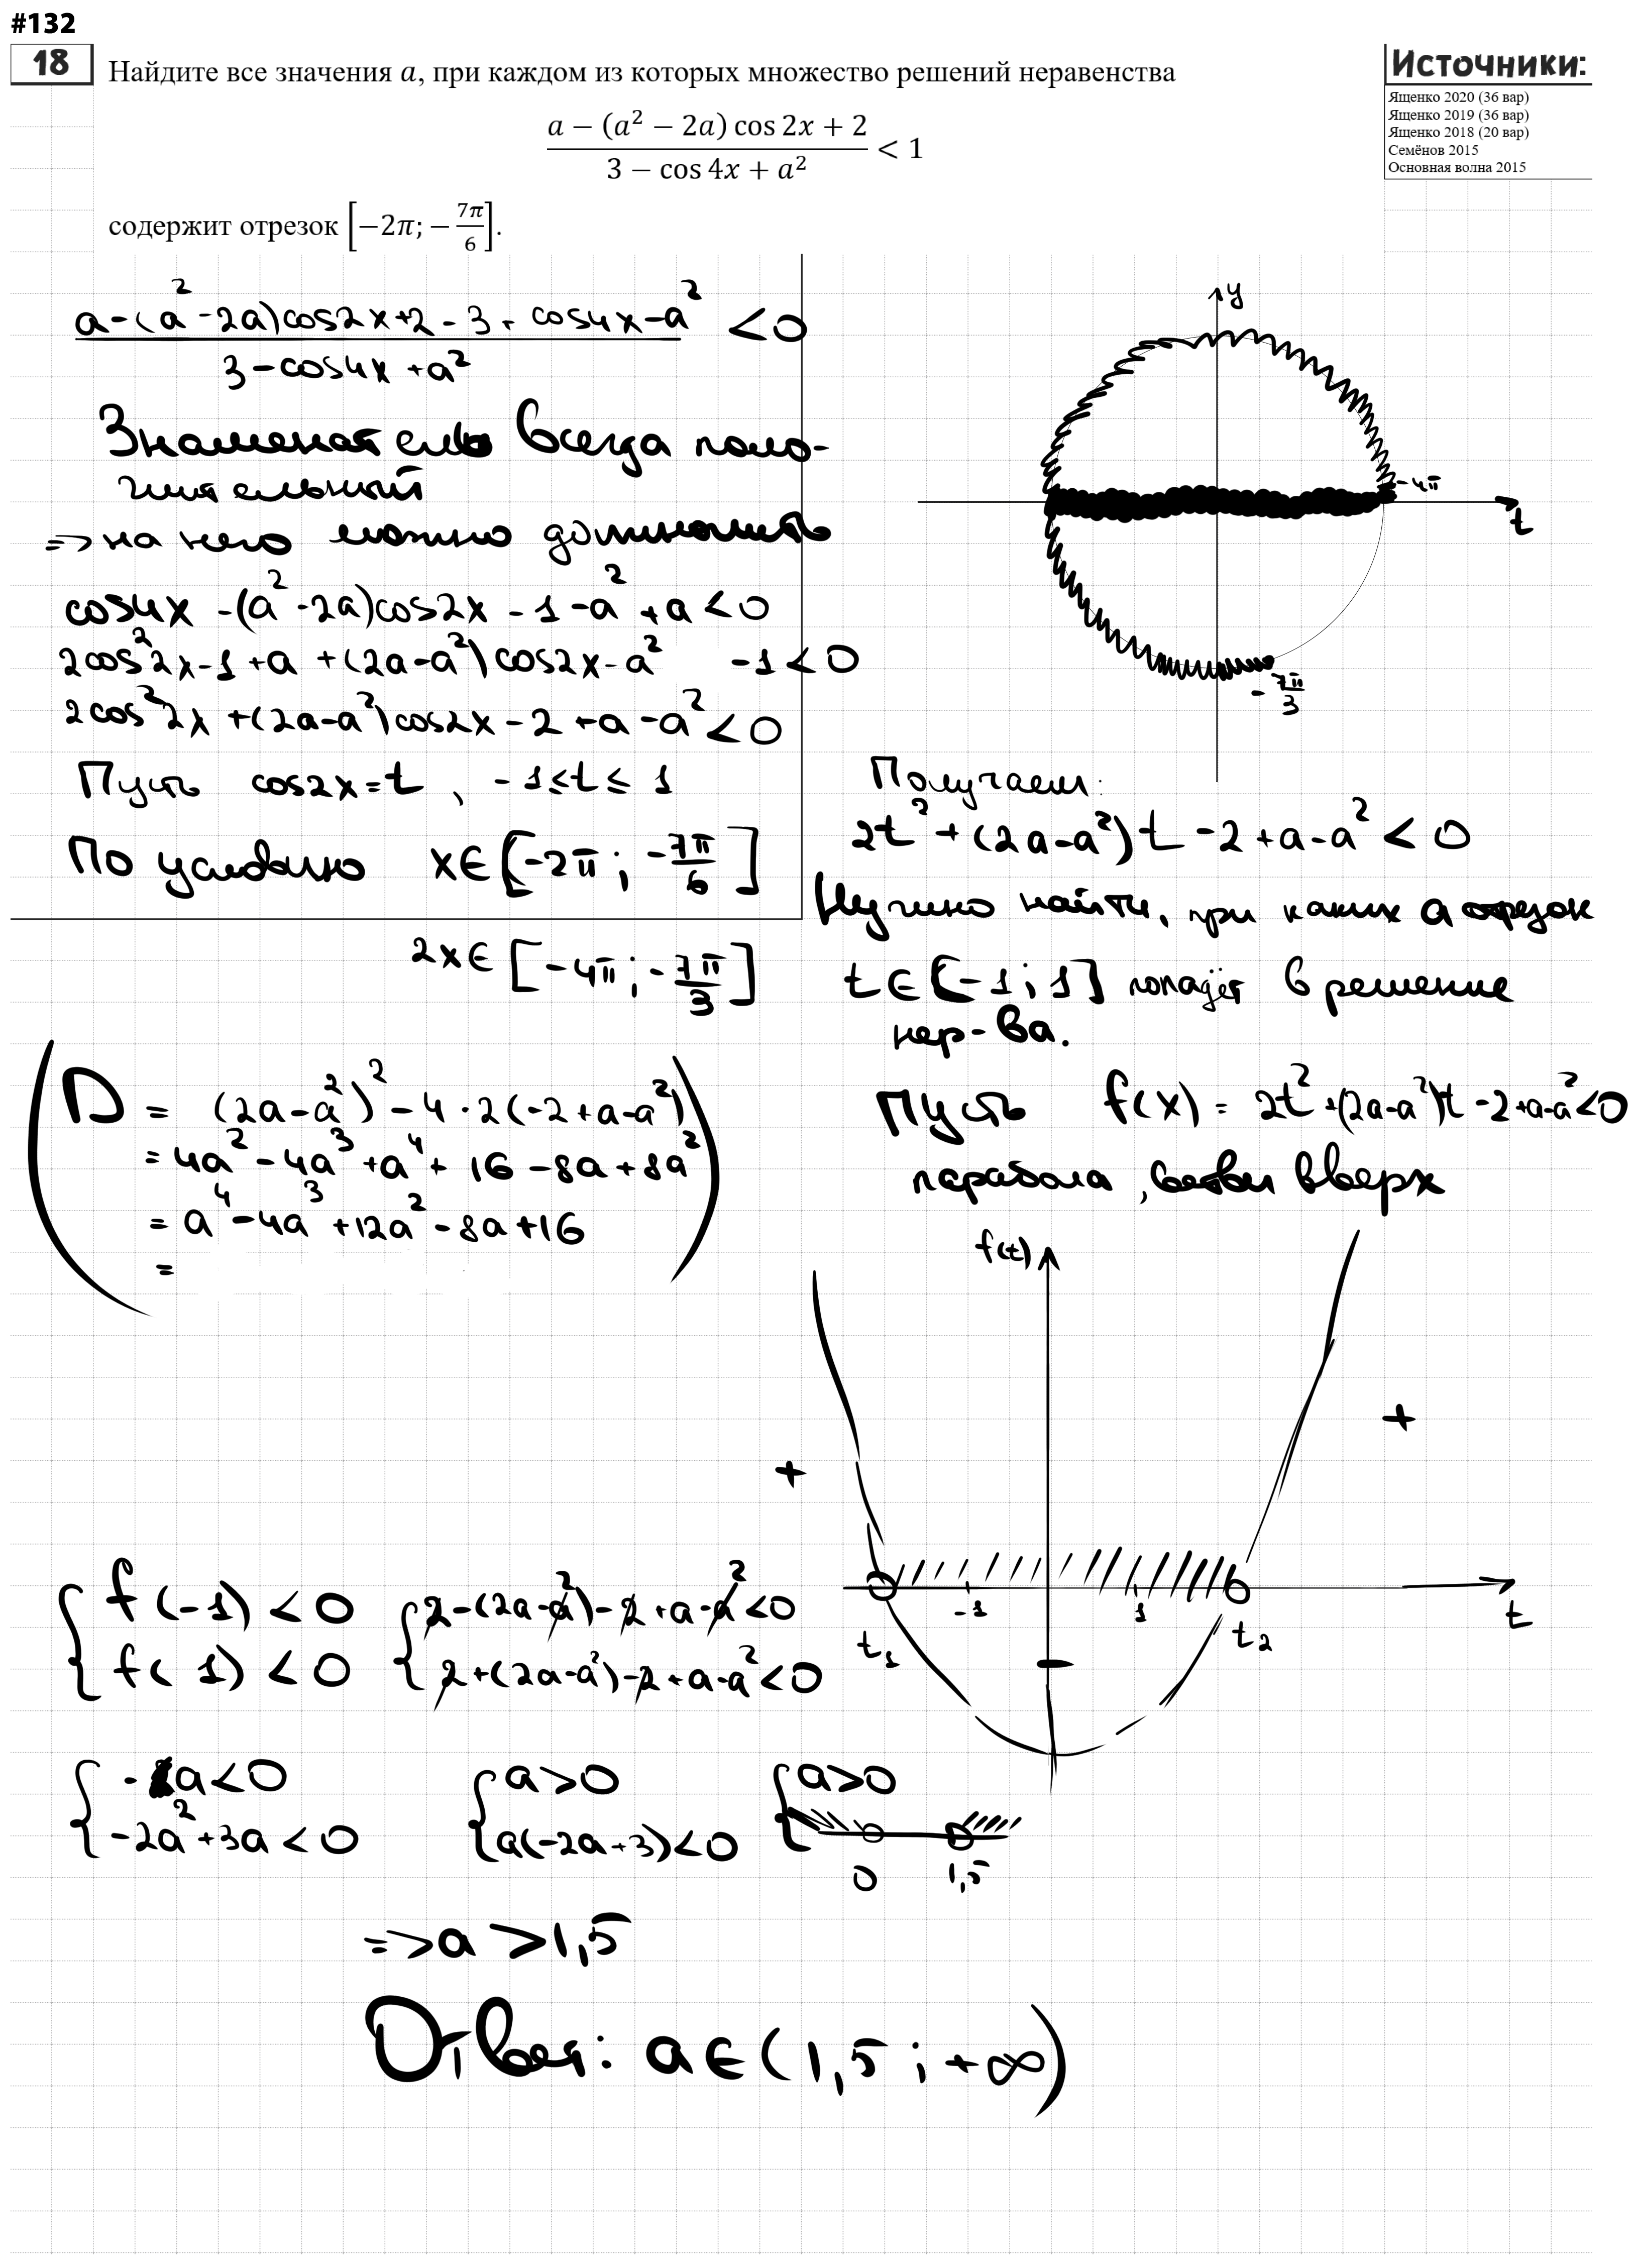 #132
18
Найдите все значения a, при каждом из которых множество решений неравенства
a − (a² − 2a) cos 2x + 2 / 3 − cos 4x + a² < 1
содержит отрезок [−2π; −7π/6].
Источники:
Ященко 2020 (36 вар)
Ященко 2019 (36 вар)
Ященко 2018 (20 вар)
Семёнов 2015
Основная волна 2015
a-(a²-2a)cos2x+2-3+cos4x-a² / 3-cos4x+a² <0
Знаменатель всегда поло-
жительный
=> на него можно домножить
cos4x -(a²-2a)cos2x - 1 -a² +a <0
2cos²2x-1 +a +(2a-a²)cos2x-a² -1<0
2cos²2x +(2a-a²)cos2x - 2 +a -a² <0
Пусть cos2x=t , -1≤t≤1
По условию x∈[-2π ; -7π/6]
2x∈[-4π ; -7π/3]
y
-4π
t
-7π/3
Получаем:
2t² +(2a-a²)t -2 +a-a² < 0
Нужно найти, при каких a отрезок
t∈[-1 ; 1] попадёт в решение
нер-ва.
Пусть f(x) = 2t²+(2a-a²)t -2+a-a²<0
парабола, ветви вверх
D = (2a-a²)² -4·2(-2+a-a²)
= 4a² -4a³ +a⁴ + 16 -8a +8a²
= a⁴-4a³ +12a² -8a +16
=
f(t)
+
+
-1
1
t
t₁
t₂
-
{ f(-1) <0
f(1) <0
{ 2-(2a-a²)-2+a-a²<0
2+(2a-a²)-2+a-a²<0
{ -a<0
-2a²+3a <0
{ a>0
a(-2a+3)<0
{ a>0
0 1,5
=> a >1,5
Ответ: a∈(1,5 ; +∞)